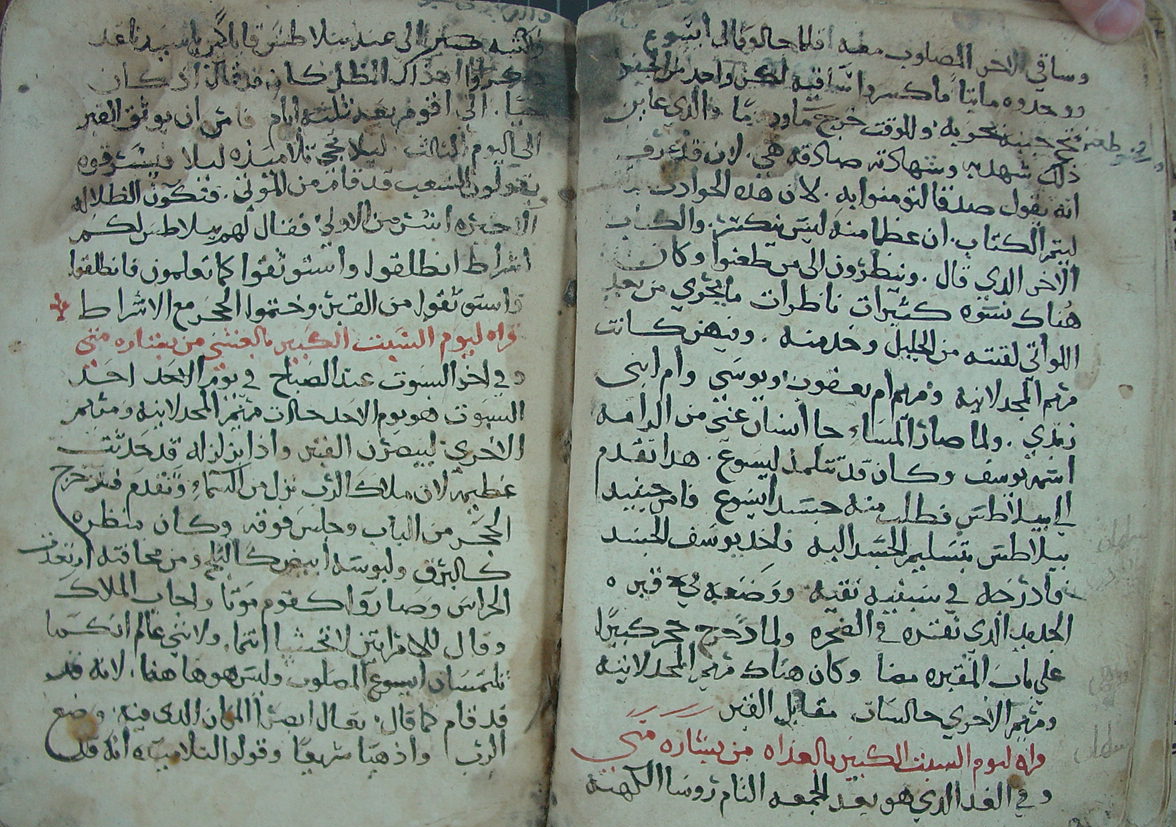 وساقي الاخر المصلوب معه فلما جاو الى ايسوع
ووجدوه مايتا ما كسروا ساقيه لكن واحد من الجند
فتح جنبه بحربه وللوقت خرج ما ودم والذي عاين
ذلك شهد به وشهادته صادقه هي لان قد عرف
انه يقول صدقا لتومنوا به لان هذه الحوادث
ليتم الكتاب ان عظما منه ليس يكسر والكتاب
الاخر الذي قال وينظرون الى من طعنوا وكان
هناك نسوه كثيرات ناظرات ما يجري من بعد
اللواتي لقنه من الجليل وخدمنه وفيهن كانت
مريم المجدلانيه ومريم ام يعقوب ويوسي وام ابني
زبدي ولما صار المساء جا انسان غني من الرامه
اسمه يوسف وكان قد تتلمذ ليسوع هذا تقدم
الى بيلاطس وطلب منه جسد ايسوع فامر حينيد
بيلاطس بتسليم الجسد اليه واخذ يوسف الجسد
فادرجه في سبنيه نقيه ووضعه في قبره
الجديد الذي نقره في الصخره ولما دحرج حجر كبيرا
على باب المقبره مضا وكان هناك مريم المجدلانيه
ومريم الاخرى جالستان مقابل القبر
واه ليوم السبت الكبير بالغداه من بشاره متى
وفي الغد الذي هو بعد الجمعه التام روسا الكهنه
الى عند بيلاطس قايلين يا سيد نا قد
ذكرنا ان ذاك المظل كان قد قال اذ كان
حيا اني اقوم بعد ثلثه ايام فامر ان يوثق القبر
الى اليوم الثالث ليلا يجي تلاميذه ليلا ويسترقوه
يقولون للشعب قد قام من الموتى فتكون الظلاله
الاخيره اشر من الاولى فقال لهم بيلاطس لكم
اشراط انطلقوا واستوثقوا كما تعلمون فانطلقوا
واستوثقوا من القبر وختموا الحجر مع الاشراط
واه ليوم السبت الكبير بالعشي من بشاره متى
وفي اخر السبوت عند الصباح في يوم الاحد احد
السبوت هو يوم الاحد جاات مريم المجدلانيه ومريم
الاخرى ليبصرن القبر واذا بزلزله قد حدثت
عظيمه لان ملاك الرب نزل من السما وتقدم فدحرج
الحجر من الباب وجلس فوقه وكان منظره
كالبرق ولبوسه ابيض كالثلج ومن مخافته ارتعد
الحراس وصاروا كقوم موتا واجاب الملاك
وقال للامراتين لا تخشيا انتما ولانني عالم انكما
تلتمسان ايسوع المصلوب وليس هو هاهنا لانه قد
قد قام كما قال تعال ابصرا المكان الذي فيه وضع
الرب واذهبا سريعا وقولوا لتلاميذه انه قد